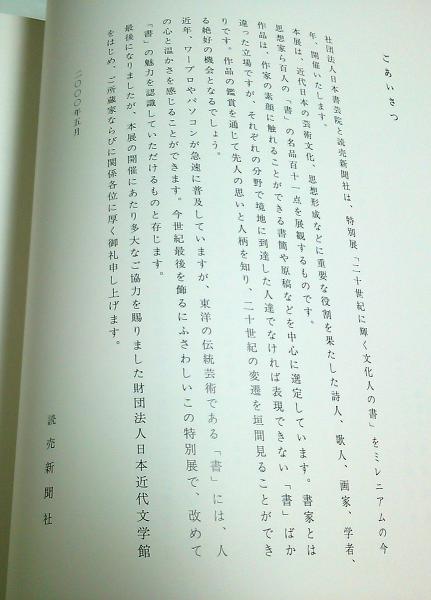 ごあいさつ
社団法人日本書芸院と読売新聞社は、特別展「二十世紀に輝く文化人の書」をミレニアムの今
年、開催いたします。
本展は、近代日本の芸術文化、思想形成などに重要な役割を果たした詩人、歌人、画家、学者、
思想家ら百人の「書」の名品百十一点を展観するものです。
作品は、作家の素顔に触れることができる書簡や原稿などを中心に選定しています。書家とは
違った立場ですが、それぞれの分野で境地に到達した人達でなければ表現できない「書」ばか
りです。作品の鑑賞を通じて先人の思いと人柄を知り、二十世紀の変遷を垣間見ることができ
る絶好の機会となるでしょう。
近年、ワープロやパソコンが急速に普及していますが、東洋の伝統芸術である「書」には、人
の心と温かさを感じることができます。今世紀最後を飾るにふさわしいこの特別展で、改めて
「書」の魅力を認識していただけるものと存じます。
最後になりましたが、本展の開催にあたり多大なご協力を賜りました財団法人日本近代文学館
をはじめ、ご所蔵家ならびに関係各位に厚く御礼申し上げます。
二〇〇〇年五月
読売新聞社